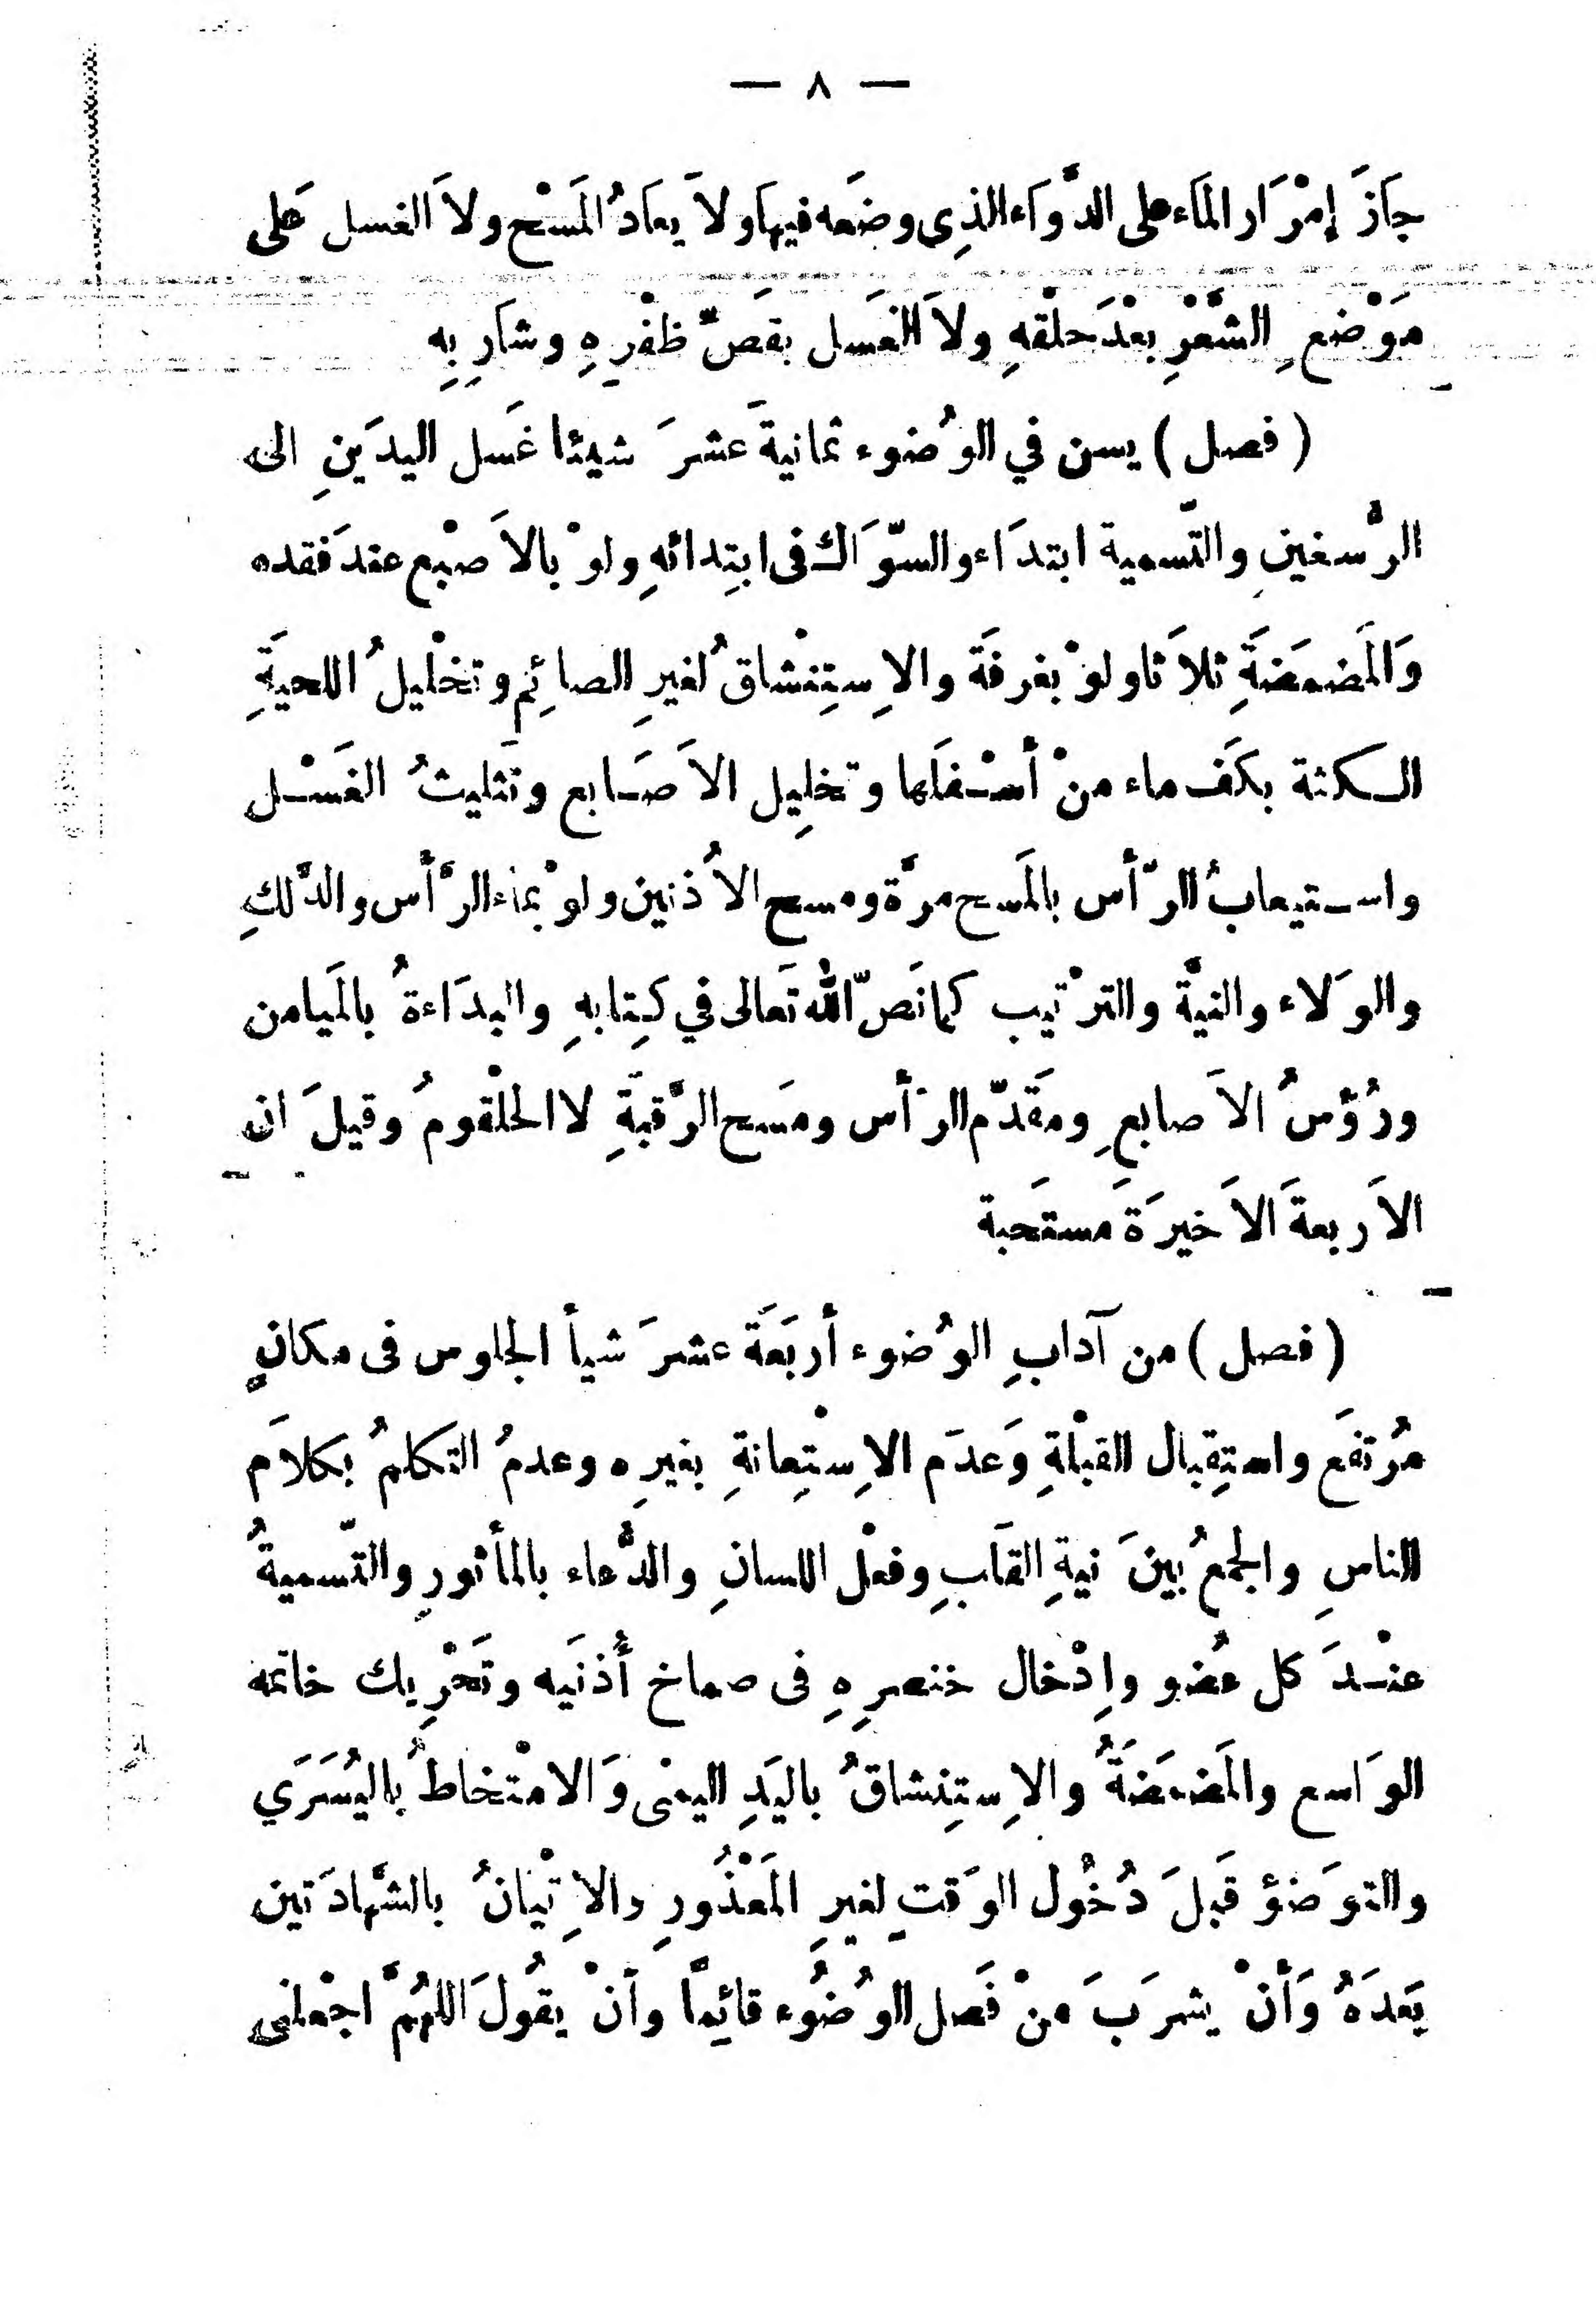 — ٨ —
جَازَ إِمْرَار المَاء على الدَّوَاء الذِي وضَعه فيهَا ولاَ يعَادُ المَسْح ولاَ الغسل عَلى
مَوْضع ِ الشَّعْرِ بعْدَ حلْقهِ ولاَ الغَسل بقَصّ ظفْرِهِ وشَارِ بِه
( فصل ) يسن في الوُضوء ثمانيةَ عشرَ شيئا غَسل اليدَينِ الى
الرُّسغينِ والتّسمية ابتدَاء والسّوَاك فى ابتِدائهِ ولوْ بالاَصْبع عندَ فقده
وَالمَضمَضَةِ ثلاَثا ولوْ بغرفَة والاِستِنْشاقُ لغيرِ الصائِم وتخْليلُ اللحيَةِ
الكثة بكَف ماء منْ أسْفلَها وتخلِيل الاَصَابع وتَثليثُ الغَسْل
واستيعابُ الرّأس بالمَسح مرَّة ومسح الاُذنين ولوْ بمَاء الرَّأس والدَّلكِ
والوَلاء والنيَّة والترْتيب كمانَصّ الله تَعالى في كِتابهِ والبدَاءةُ بالمَيامن
ورُؤسُ الاَصابع ِ ومقَدّم الرَأس ومَسح الرَّقبَةِ لا الحلْقومُ وقيلَ ان
الاَربعةَ الاَخيرَةَ مستَحبة
( فصل ) من آدابِ الوُضوء أربَعَةَ عشرَ شيأ الجلوس فى مكانٍ
مُرتفَع واستِقبال القبْلةِ وَعدَم الاِسْتِعانةِ بغيرِه وعدمُ التكلمُ بكلاَم
الناسِ والجمعُ بينَ نيةِ القَلبِ وفعْل اللسانِ والدُّعاء بالمأثورِ والتّسميةُ
عنْدَ كل عُضو وإِدْخال خنصرِهِ فى صماخ أُذنَيه وتَحْرِيك خاتمه
الوَاسع والمَضمَضَةُ والاِستِنشاقُ باليَدِ اليمنى وَالامْتخاطُ باليُسَرَي
والتوَضؤ قَبلَ دُخُول الوَقتِ لغيرِ المَعْذُورِ والاِتْيانُ بالشَّهادَتين
بَعدَهُ وَأنْ يشرَبَ منْ فَصل الوُضُوء قائِماً وأنْ يقُولَ اللهُمَّ اجْعلنى